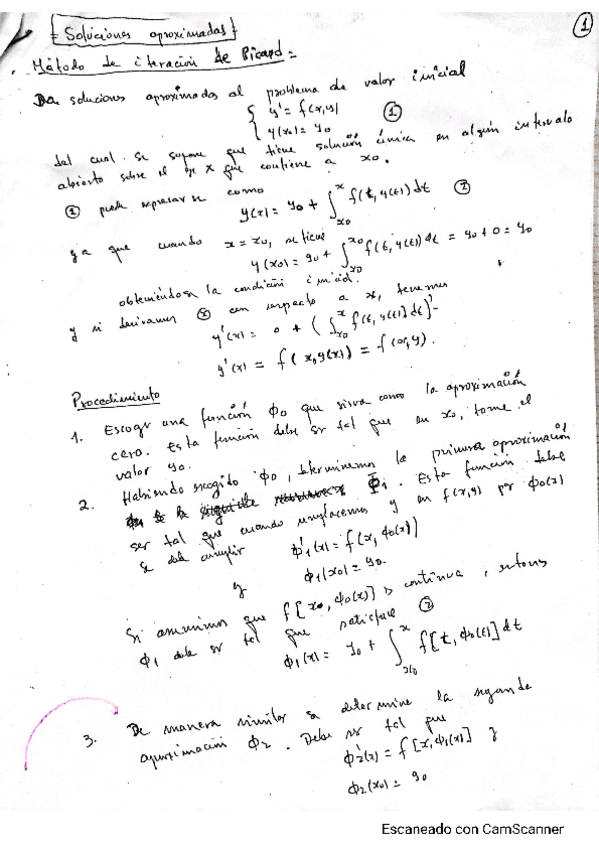 Soluciones aproximadas
1
Método de iteración de Picard =
Da soluciones aproximadas al problema de valor inicial
{ y' = f(x,y)
y(x0) = y0 ①
del cual se supone que tiene solución única en algún intervalo
abierto sobre el eje x que contiene a x0.
① puede expresarse como
y(x) = y0 + ∫_{x0}^{x} f(t, y(t)) dt ②
ya que cuando x = x0, se tiene
y(x0) = y0 + ∫_{x0}^{x0} f(t, y(t)) dt = y0 + 0 = y0
obteniéndose la condición inicial.
y si derivamos ② con respecto a x, tenemos
y'(x) = 0 + (∫_{x0}^{x} f(t, y(t)) dt)'
y'(x) = f(x, y(x)) = f(x,y).
Procedimiento
1. Escoger una función ϕ0 que sirva como la aproximación
cero. Esta función debe ser tal que en x0, tome el
valor y0.
2. Habiendo escogido ϕ0, determinemos la primera aproximación
ϕ1. Esta función debe
ser tal que cuando reemplacemos y en f(x,y) por ϕ0(x)
se debe cumplir ϕ1'(x) = f[x, ϕ0(x)]
y ϕ1(x0) = y0.
Si asumimos que f[x, ϕ0(x)] es continua, entonces
ϕ1 debe ser tal que satisface ②
ϕ1(x) = y0 + ∫_{x0}^{x} f[t, ϕ0(t)] dt
3. De manera similar se determine la segunda
aproximación ϕ2. Debe ser tal que
ϕ2'(x) = f[x, ϕ1(x)] y
ϕ2(x0) = y0
Escaneado con CamScanner